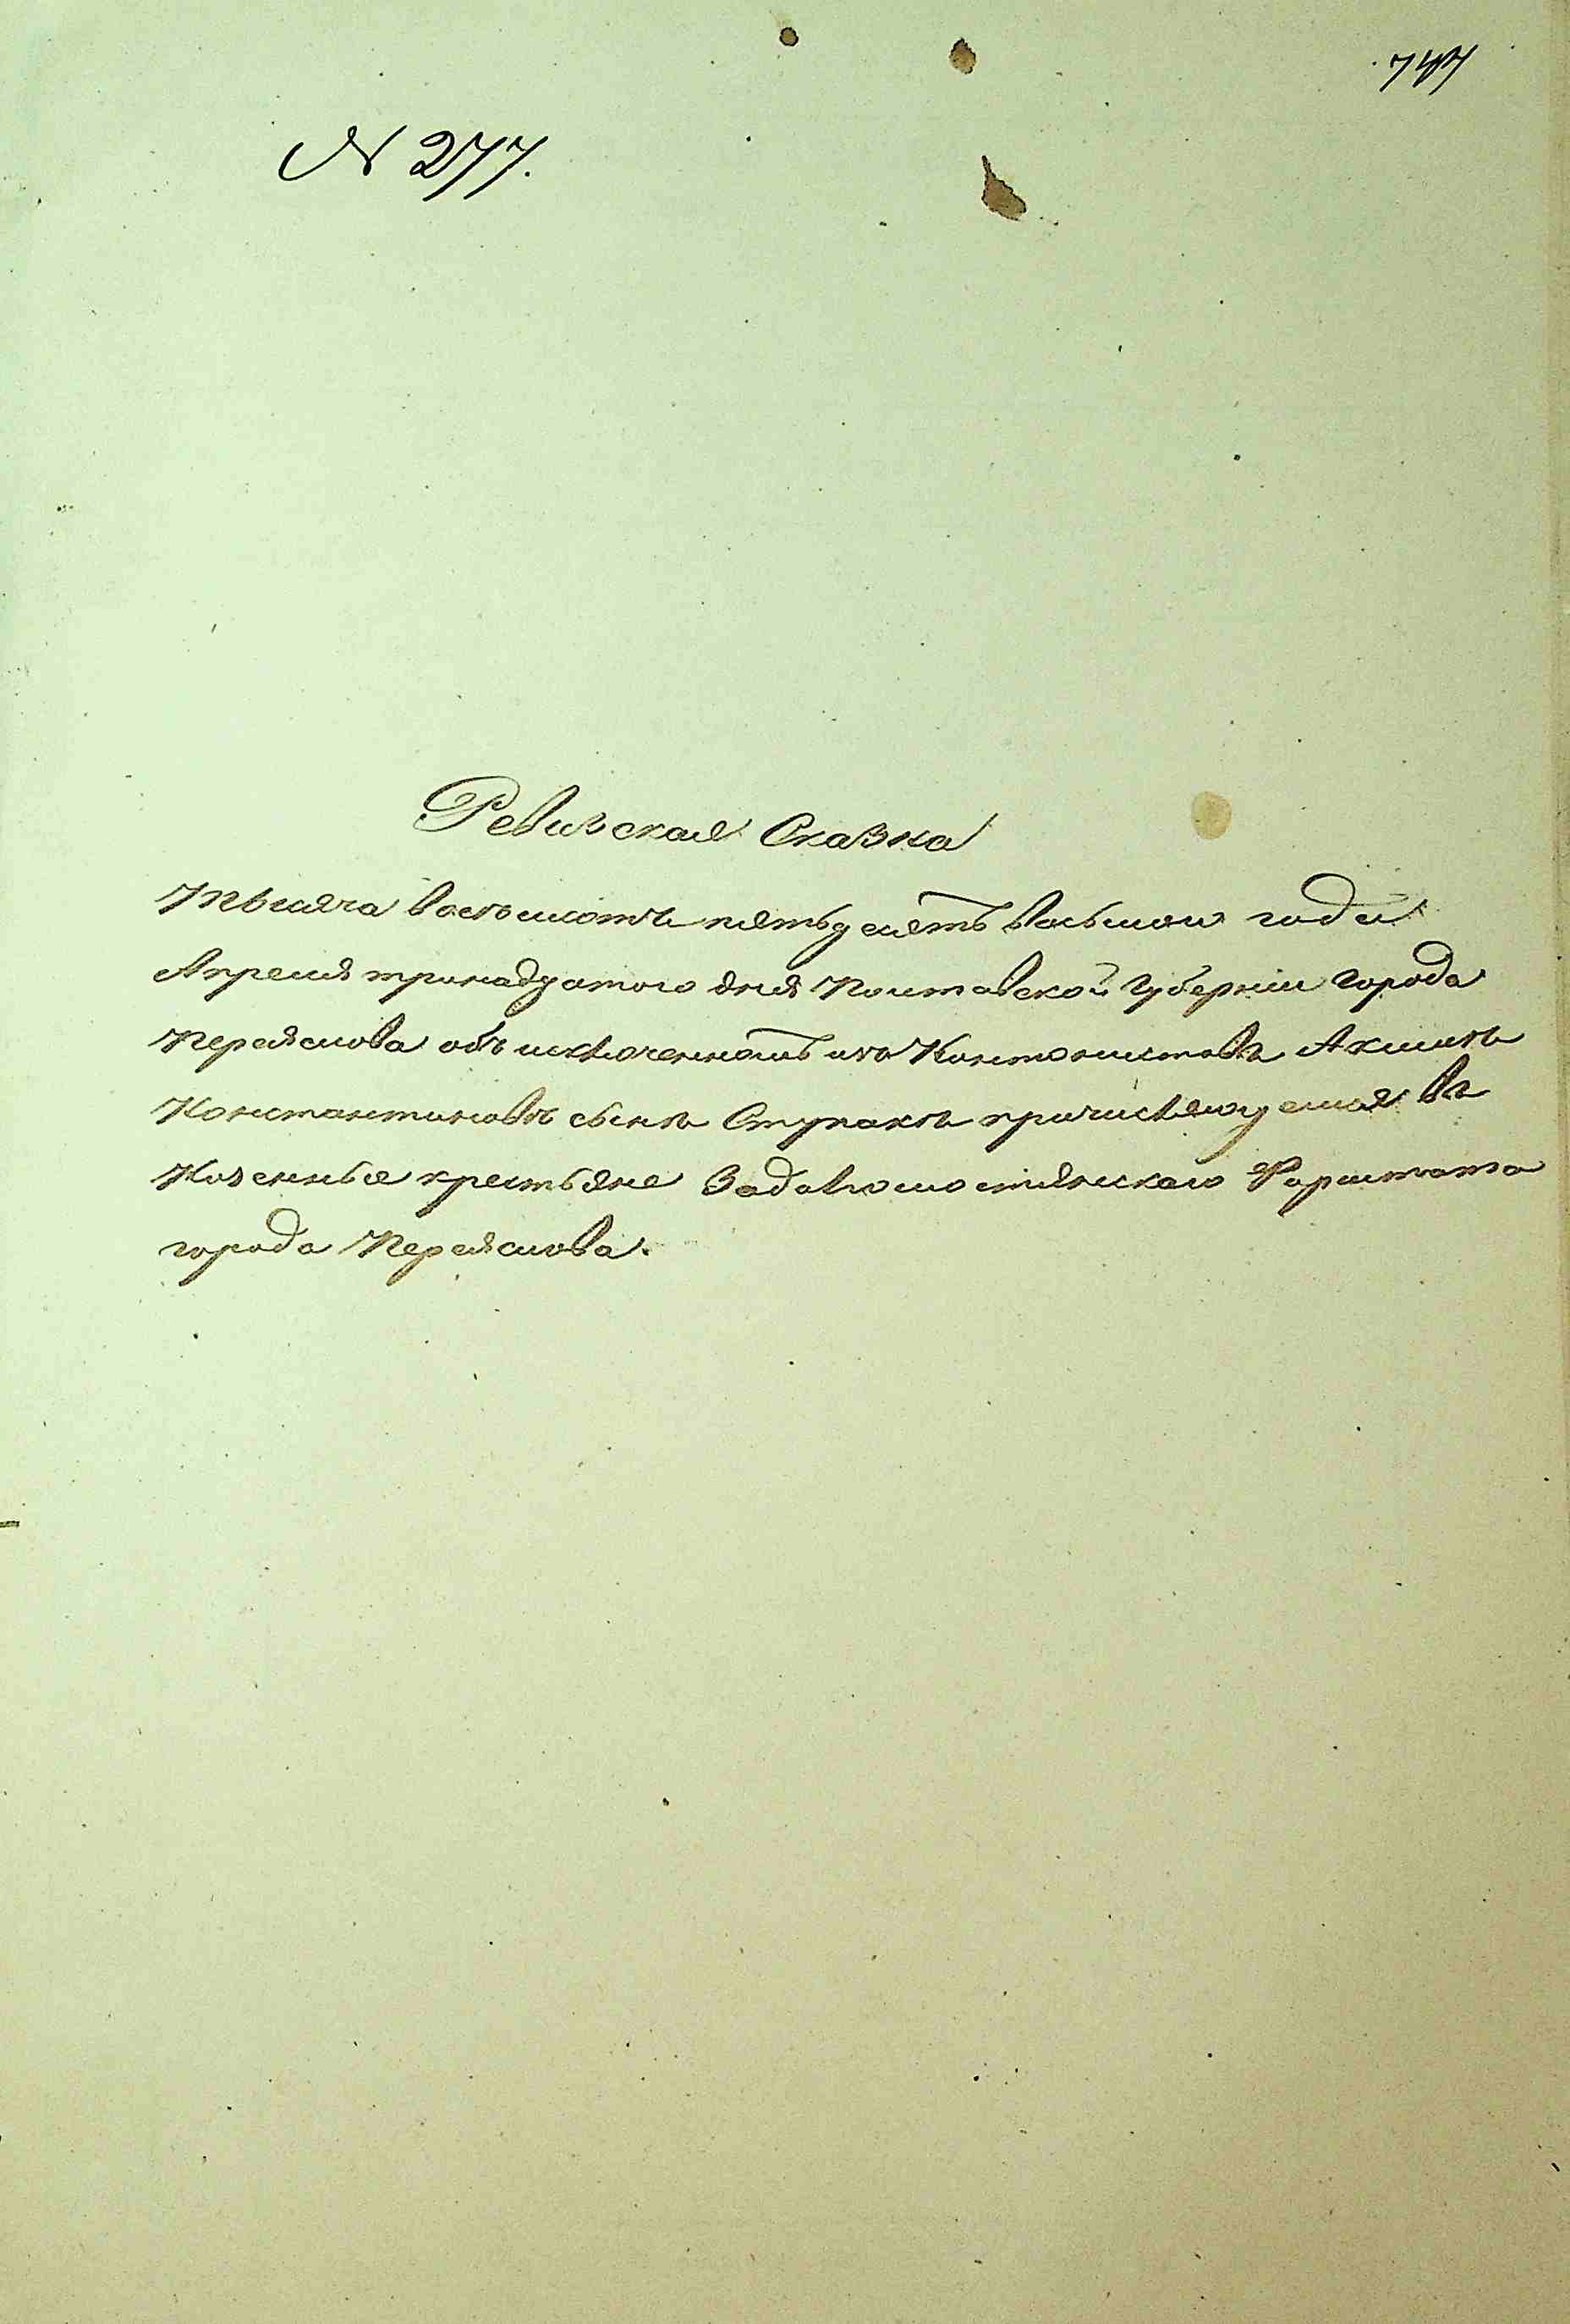 747
N 277.
Ревизская Сказка
Тысяча восемьсотъ пятьдесятъ восьмого года
Апреля тринадцатого дня Полтавской Губерніи города
Переяслова объ исключенномъ изъ Кантонистовъ Акимѣ
Константиновѣ сынѣ Ступакѣ причисляющемся въ
Казенные крестьяне Задольмостянскаго Форштата
города Переяслова.